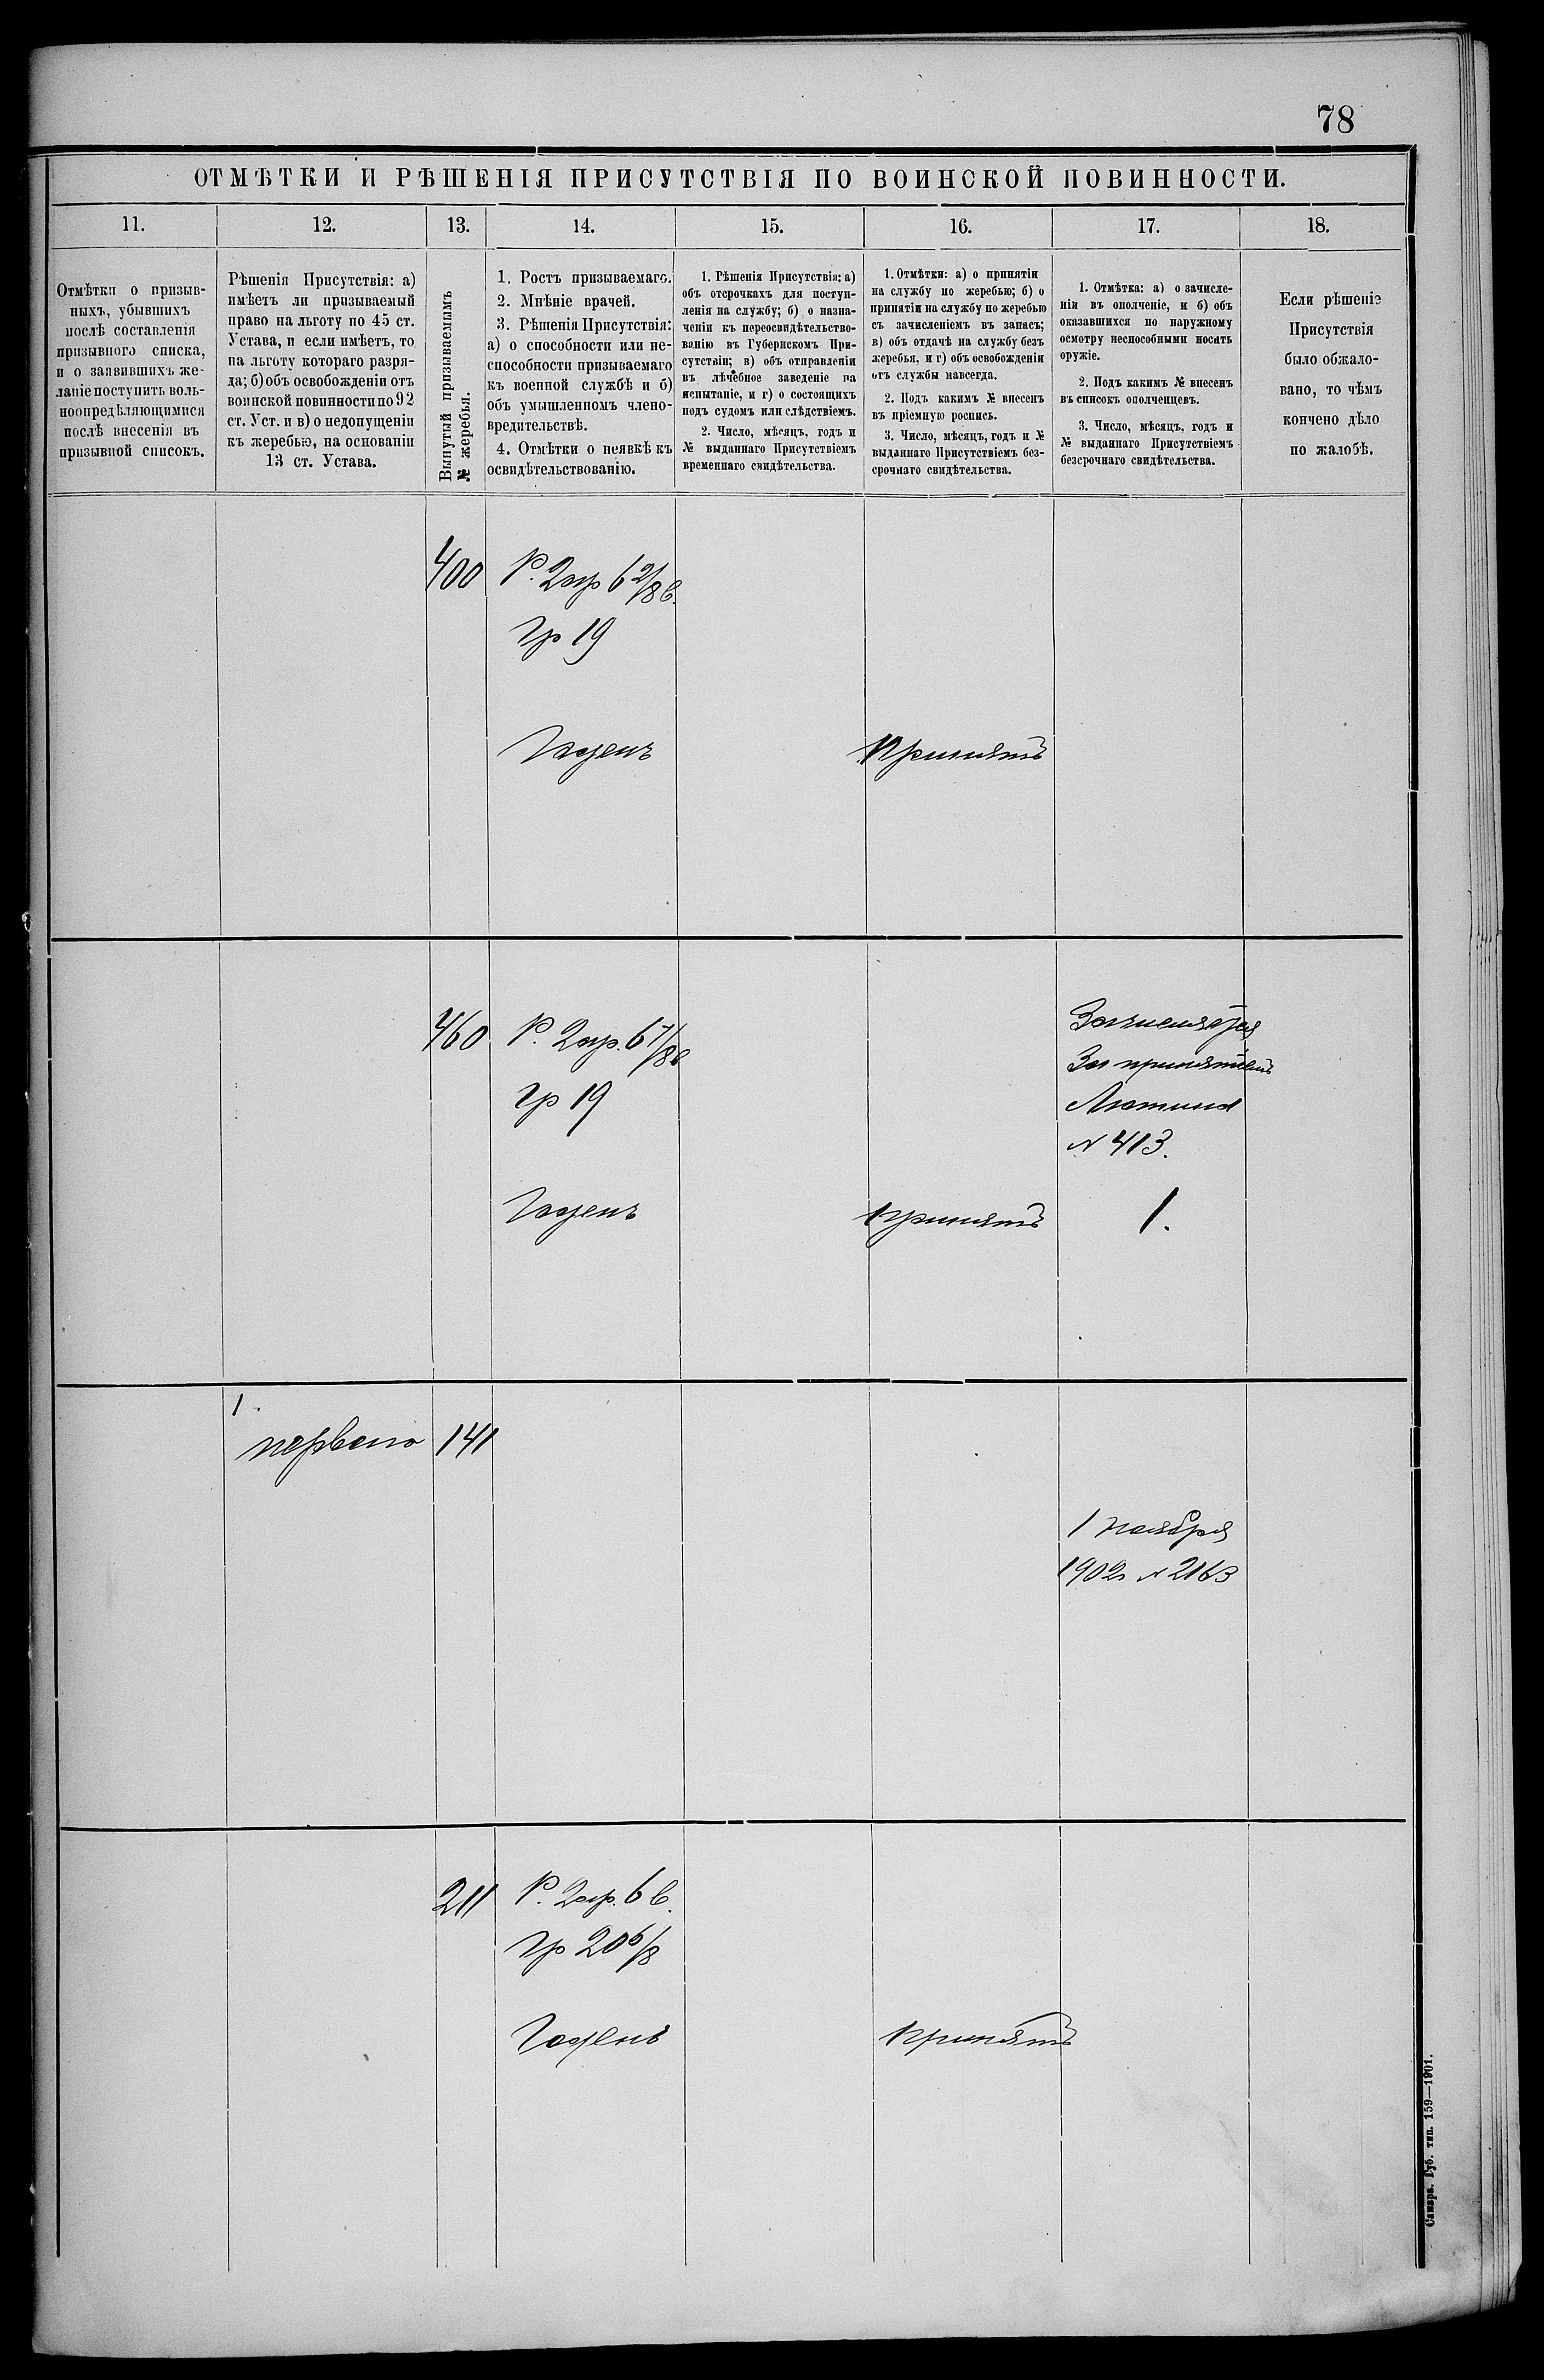 78
ОТМѢТКИ И РѢШЕНІЯ ПРИСУТСТВІЯ ПО ВОИНСКОЙ ПОВИННОСТИ.
11.
12.
13.
14.
15.
16.
17.
18.
Отмѣтки о призыв-
ныхъ, убывшихъ
послѣ составленія
призывного списка,
и о заявившихъ же-
ланіе поступить воль-
ноопредѣляющимися
послѣ внесенія въ
призывной списокъ.
Рѣшенія Присутствія: а)
имѣетъ ли призываемый
право на льготу по 45 ст.
Устава, и если имѣетъ, то
на льготу котораго разря-
да; б) объ освобожденіи отъ
воинской повинности по 92
ст. Уст. и в) о недопущеніи
къ жеребью, на основаніи
13 ст. Устава.
Вынутый призываемымъ
№ жеребья.
1. Ростъ призываемаго.
2. Мнѣніе врачей.
3. Рѣшенія Присутствія:
а) о способности или не-
способности призываемаго
къ военной службѣ и б)
объ умышленномъ члено-
вредительствѣ.
4. Отмѣтки о неявкѣ къ
освидѣтельствованію.
1. Рѣшенія Присутствія: а)
объ отсрочкахъ для поступ-
ленія на службу; б) о назна-
ченіи къ переосвидѣтельство-
ванію въ Губернскомъ При-
сутствіи; в) объ отправленіи
въ лѣчебное заведеніе на
испытаніе, и г) о состоящихъ
подъ судомъ или слѣдствіемъ.
2. Число, мѣсяцъ, годъ и
№ выданнаго Присутствіемъ
временнаго свидѣтельства.
1. Отмѣтки: а) о принятіи
на службу по жеребью; б) о
принятіи на службу по жеребью
съ зачисленіемъ въ запасъ;
в) объ отдачѣ на службу безъ
жеребья, и г) объ освобожденіи
отъ службы навсегда.
2. Подъ какимъ № внесенъ
въ пріемную роспись.
3. Число, мѣсяцъ, годъ и №
выданнаго Присутствіемъ без-
срочнаго свидѣтельства.
1. Отмѣтка: а) о зачисле-
ніи въ ополченіе, и б) объ
оказавшихся по наружному
осмотру неспособными носить
оружіе.
2. Подъ какимъ № внесенъ
въ списокъ ополченцевъ.
3. Число, мѣсяцъ, годъ и
№ выданнаго Присутствіемъ
безсрочнаго свидѣтельства.
Если рѣшеніе
Присутствія
было обжало-
вано, то чѣмъ
кончено дѣло
по жалобѣ.
400
Р. 2 ар 6 2/8 в.
гр 19
Годенъ
Принятъ
460
Р. 2 ар. 6 7/8 в
гр 19
Годенъ
принятъ
За принятіемъ
№ 413.
1.
1.
первого
141
1 ноября
1902 г № 2163
211
Р. 2 ар. 6 в.
гр 20 6/8
Годенъ
принятъ
Самара. Губ. тип. 159—1901.